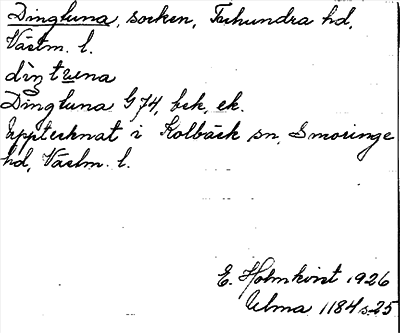 Dingtuna, socken, Tuhundra hd,
Västm. l.
dìŋtuna
Dingtuna G 74, bek, ek.
Upptecknat i Kolbäck sn, Snoringe
hd, Västm. l.
E. Holmkvist 1926
Ulma 1184 s. 25